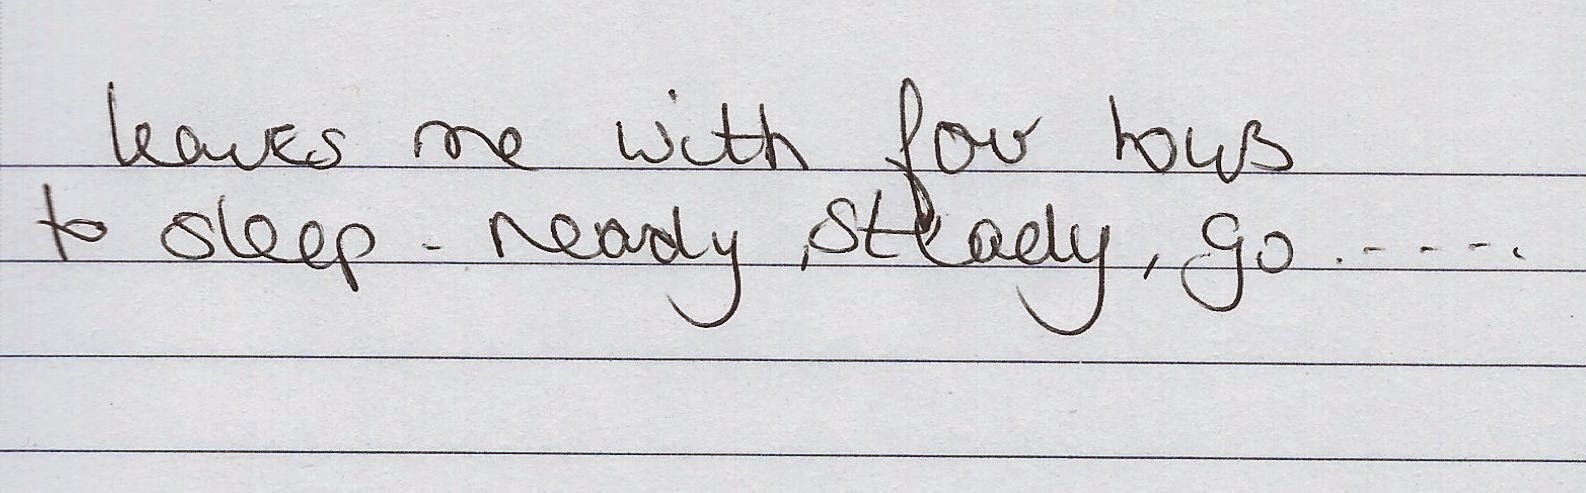 leaves me with four hours
to sleep - ready, steady, go . - - - - .